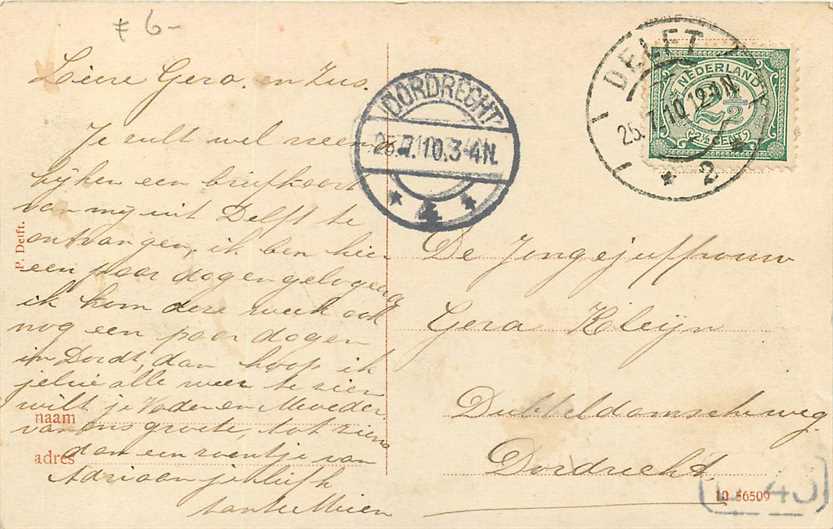 f 6-
Lieve Gera. en Zus.
Je zult wel
een briefkaart
van mij uit Delft te
ontvangen, ik ben hier
een paar dagen gelogeerd
ik kom deze week ook
nog een paar dagen
in Dordt, dan hoop ik
jelui alle weer te zien
wilt je Vader en Moeder
van ons groete, tot ziens
dan een zoentje van
Adriaan je
tante Mien
naam
adres
P. Delft.
DORDRECHT
25.7.10.3-4N.
4
DELFT
25.7.10.12-1N
2
NEDERLAND
2½
2½ CENT
De Jongejuffrouw
Gera Kleijn
Dubbeldamscheweg
Dordrecht
10 56509